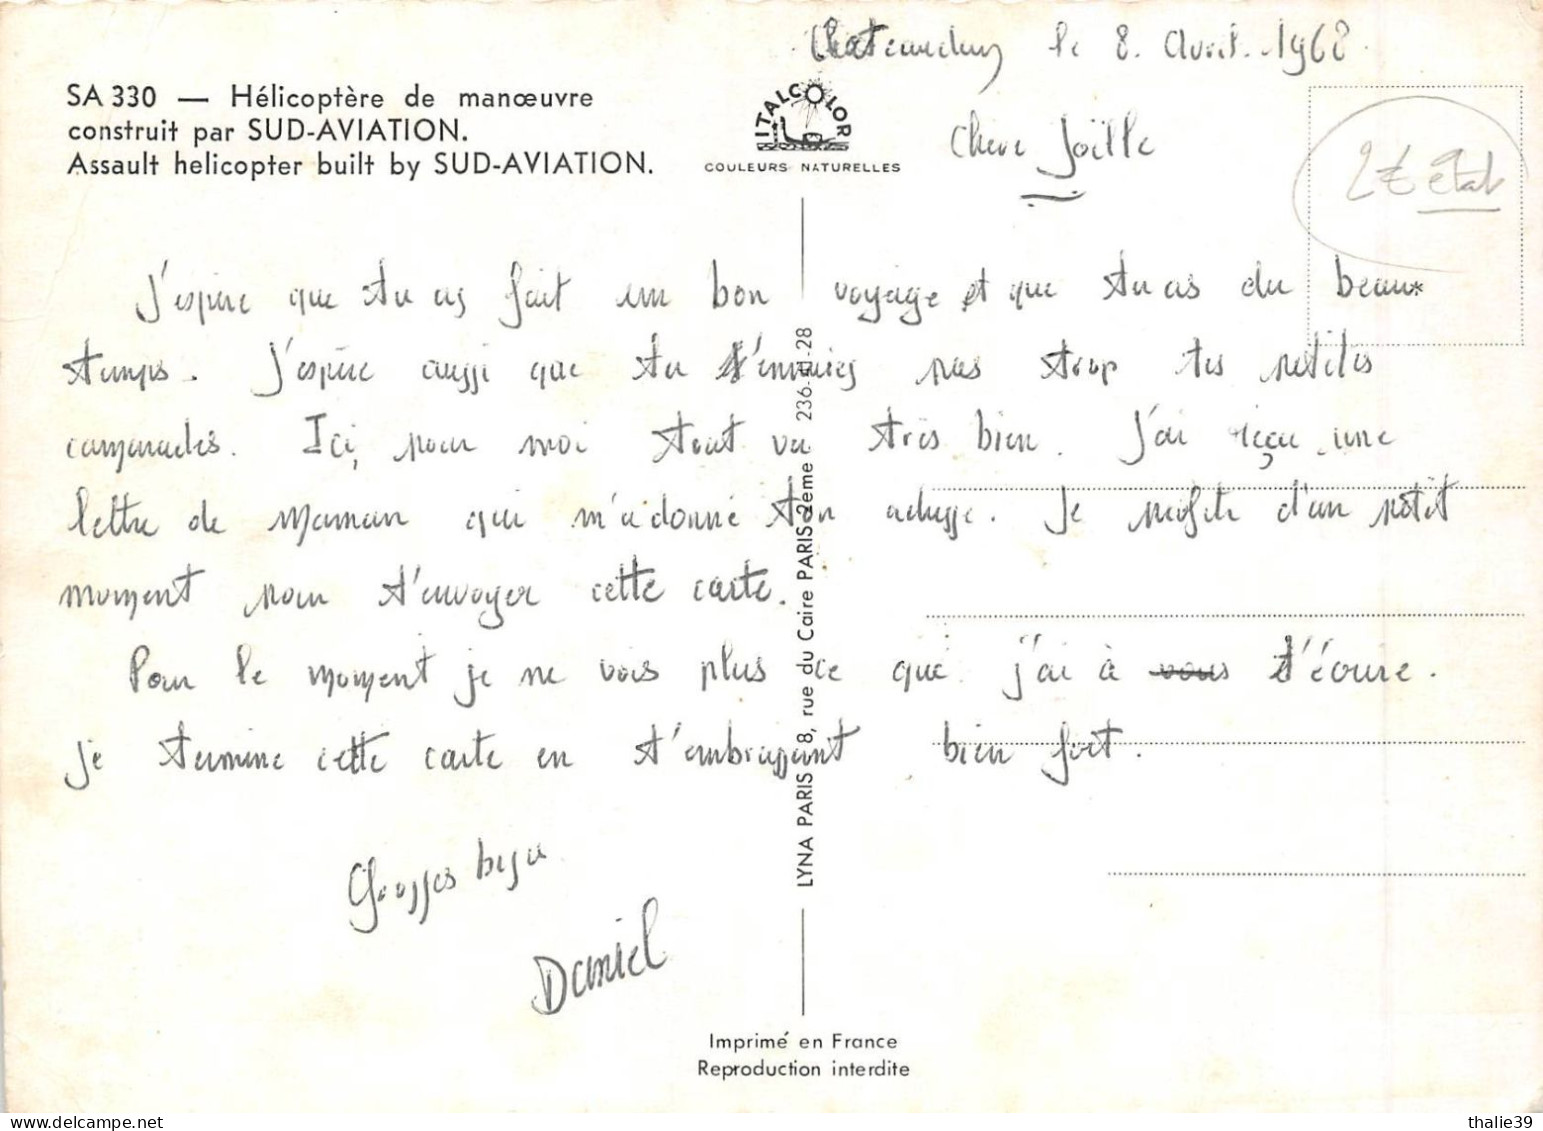 Chateaudun le 8. Avril. 1968.
SA 330 — Hélicoptère de manœuvre
construit par SUD-AVIATION.
Assault helicopter built by SUD-AVIATION.
ITALCOLOR
COULEURS NATURELLES
Chère Joëlle
2€ état
J'espère que tu as fait un bon voyage et que tu as du beau
temps. J'espère aussi que tu t'ennuies pas trop tes petites
camarades. Ici, pour moi tout va très bien. J'ai reçu une
lettre de Maman qui m'a donné ton adresse. Je profite d'un petit
moment pour t'envoyer cette carte.
Pour le moment je ne vois plus ce que j'ai à vous t'écrire.
je termine cette carte en t'embrassant bien fort.
Grosses bises
Daniel
LYNA PARIS 8, rue du Caire PARIS 2ème 236-41-28
Imprimé en France
Reproduction interdite
thalie39